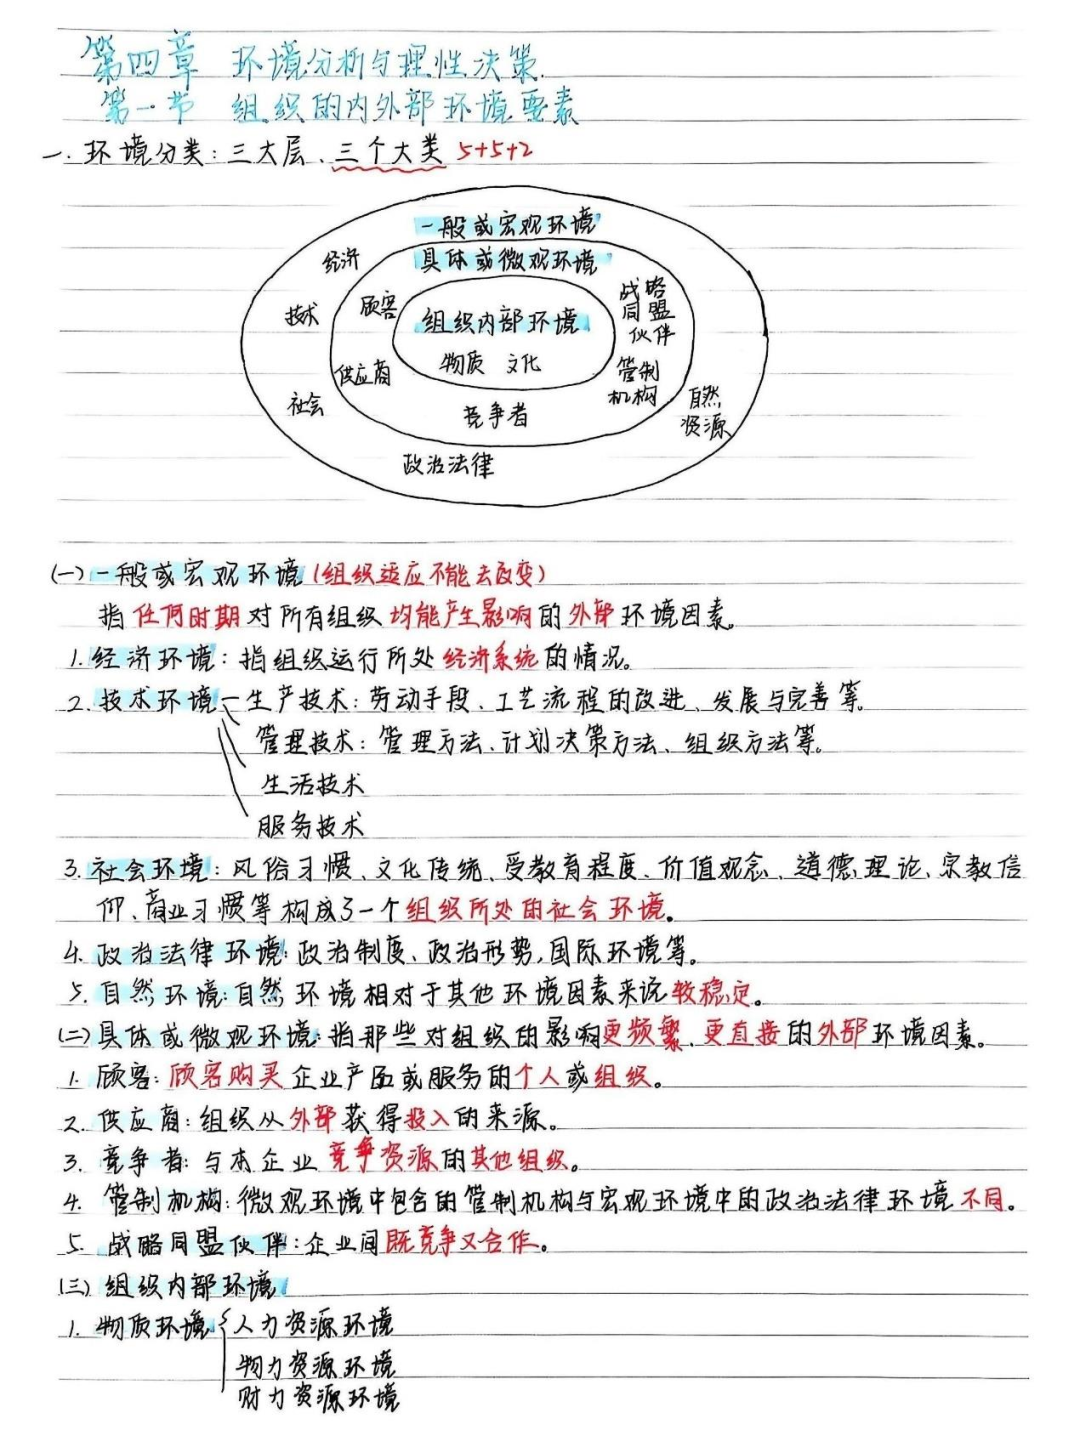 第四章 环境分析与理性决策
第一节 组织的内外部环境要素
一.环境分类:三大层、三个大类 5+5+2
一般或宏观环境
经济
具体或微观环境
技术
顾客
战略
同盟
伙伴
组织内部环境
物质 文化
供应商
管制
机构
社会
竞争者
自然
资源
政治法律
(一)一般或宏观环境(组织适应不能去改变)
指任何时期对所有组织均能产生影响的外部环境因素。
1.经济环境:指组织运行所处经济系统的情况。
2.技术环境-生产技术:劳动手段、工艺流程的改进、发展与完善等。
管理技术:管理方法、计划决策方法、组织方法等。
生活技术
服务技术
3.社会环境:风俗习惯、文化传统、受教育程度、价值观念、道德理论、宗教信
仰、商业习惯等构成了一个组织所处的社会环境。
4.政治法律环境:政治制度、政治形势,国际环境等。
5.自然环境:自然环境相对于其他环境因素来说较稳定。
(二)具体或微观环境:指那些对组织的影响更频繁、更直接的外部环境因素。
1.顾客:顾客购买企业产品或服务的个人或组织。
2.供应商:组织从外部获得投入的来源。
3.竞争者:与本企业竞争资源的其他组织。
4.管制机构:微观环境中包含的管制机构与宏观环境中的政治法律环境不同。
5.战略同盟伙伴:企业间既竞争又合作。
(三)组织内部环境
1.物质环境{人力资源环境
物力资源环境
财力资源环境